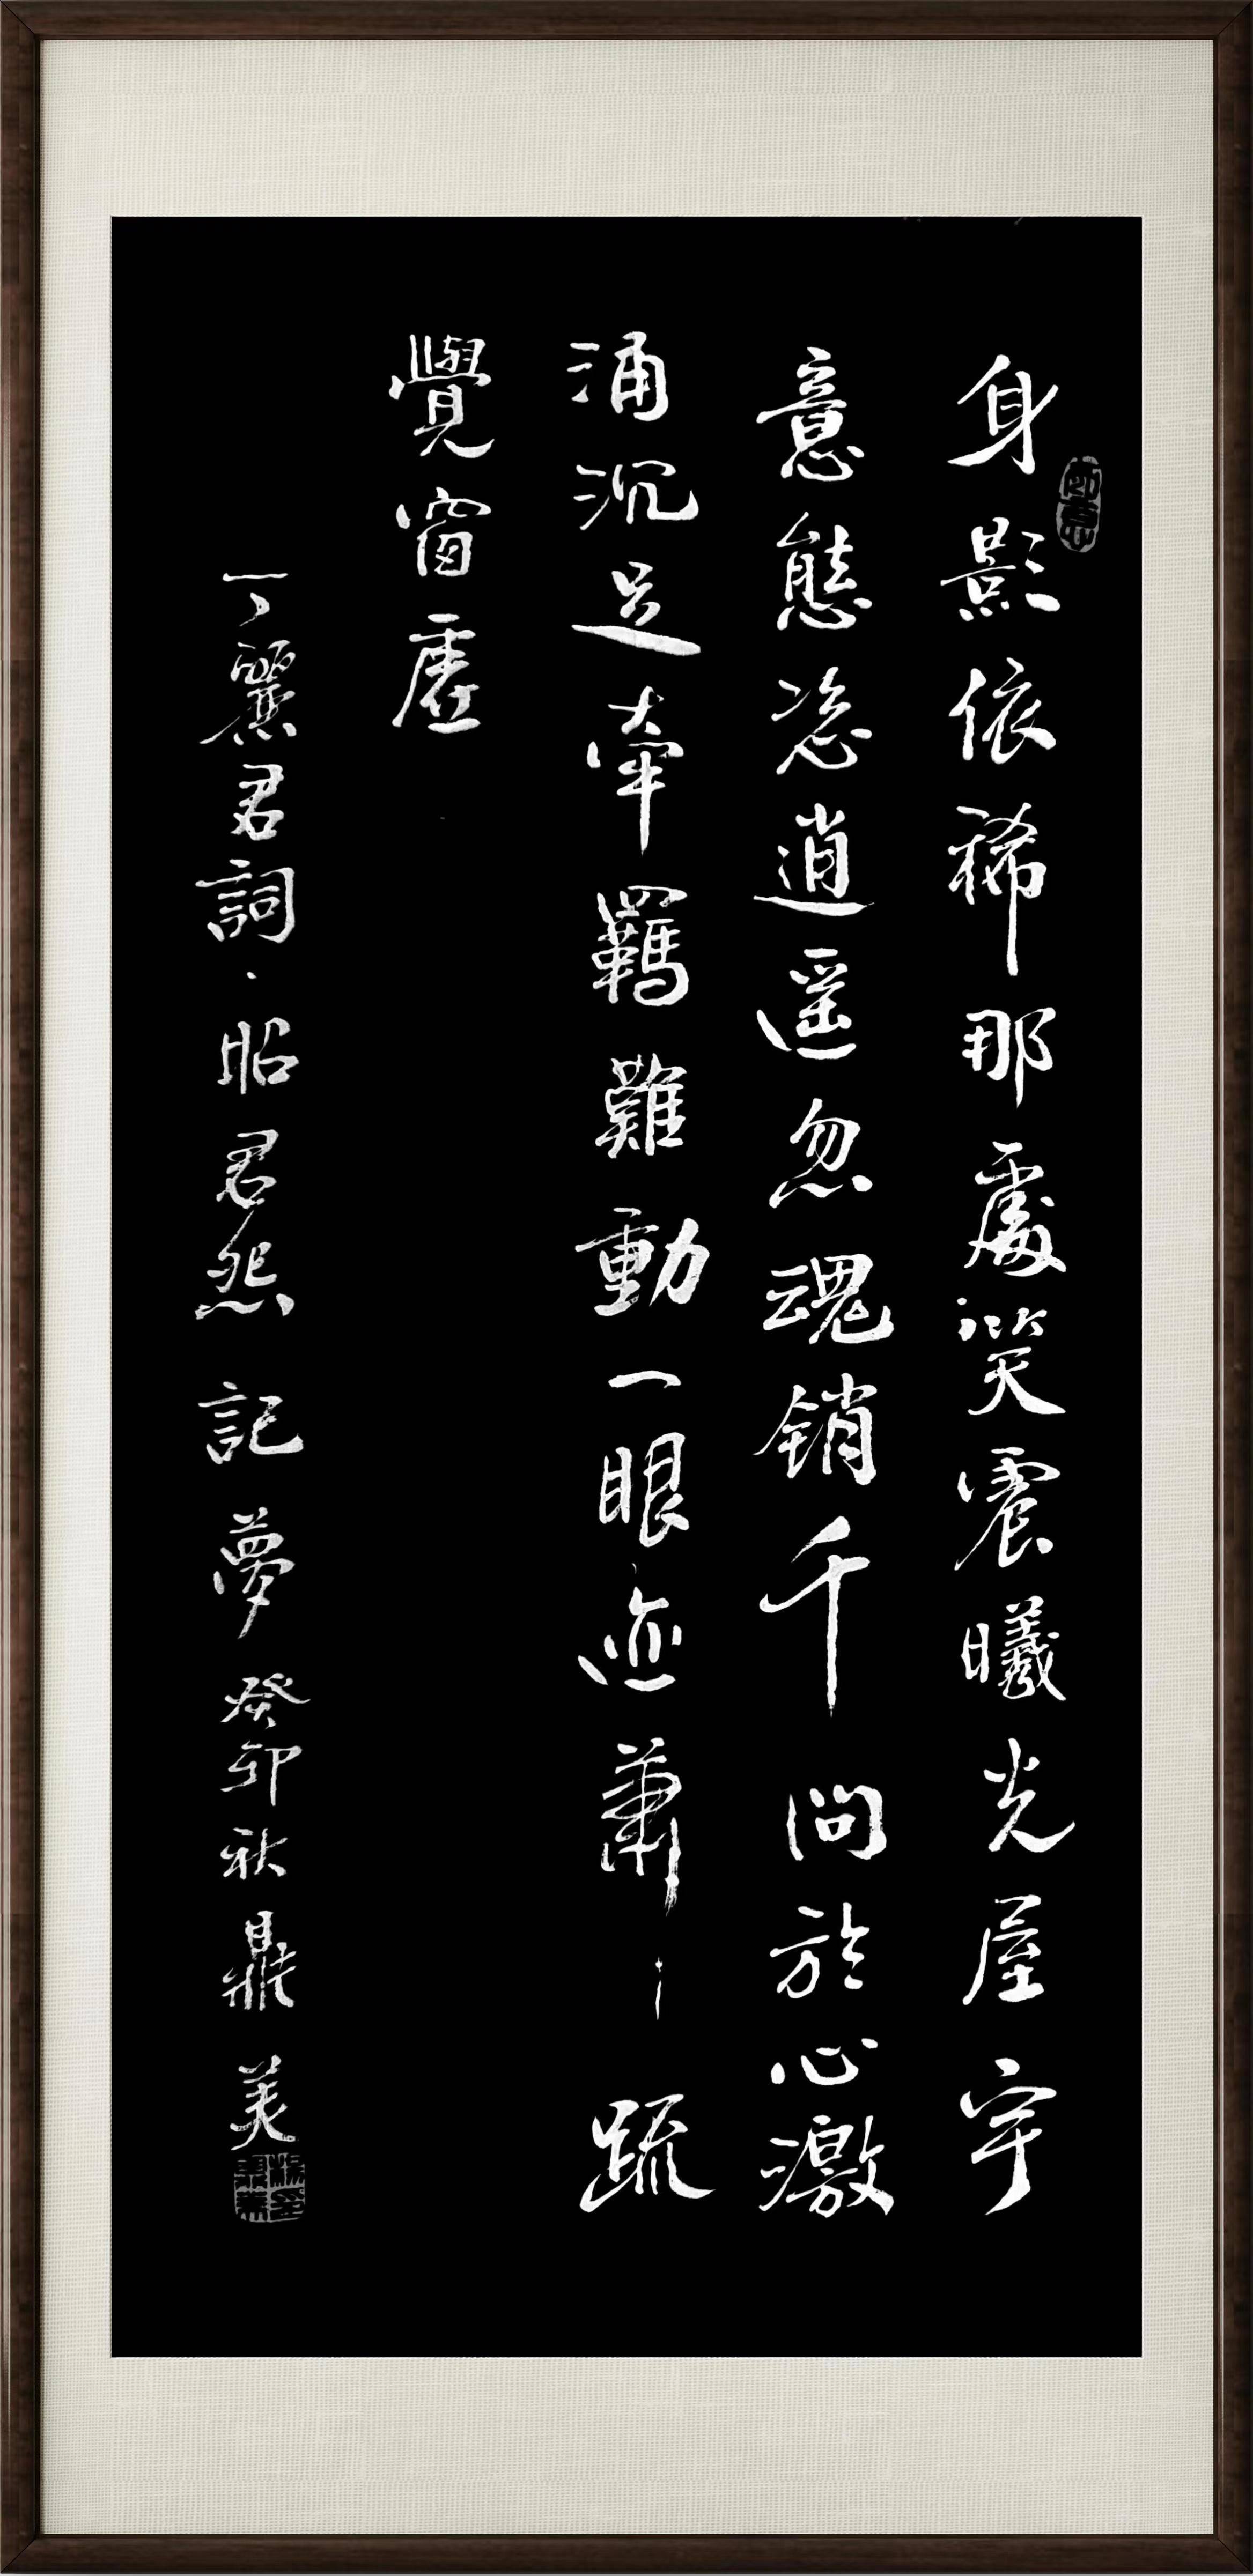 身影依稀那處笑震曦光屋宇
意態恣逍遥忽魂销千問於心激
涌沉足牽羈難動一眼迹蕭疏
覺窗虛
丁麗君詞·昭君怨 記夢 癸卯秋鼎美